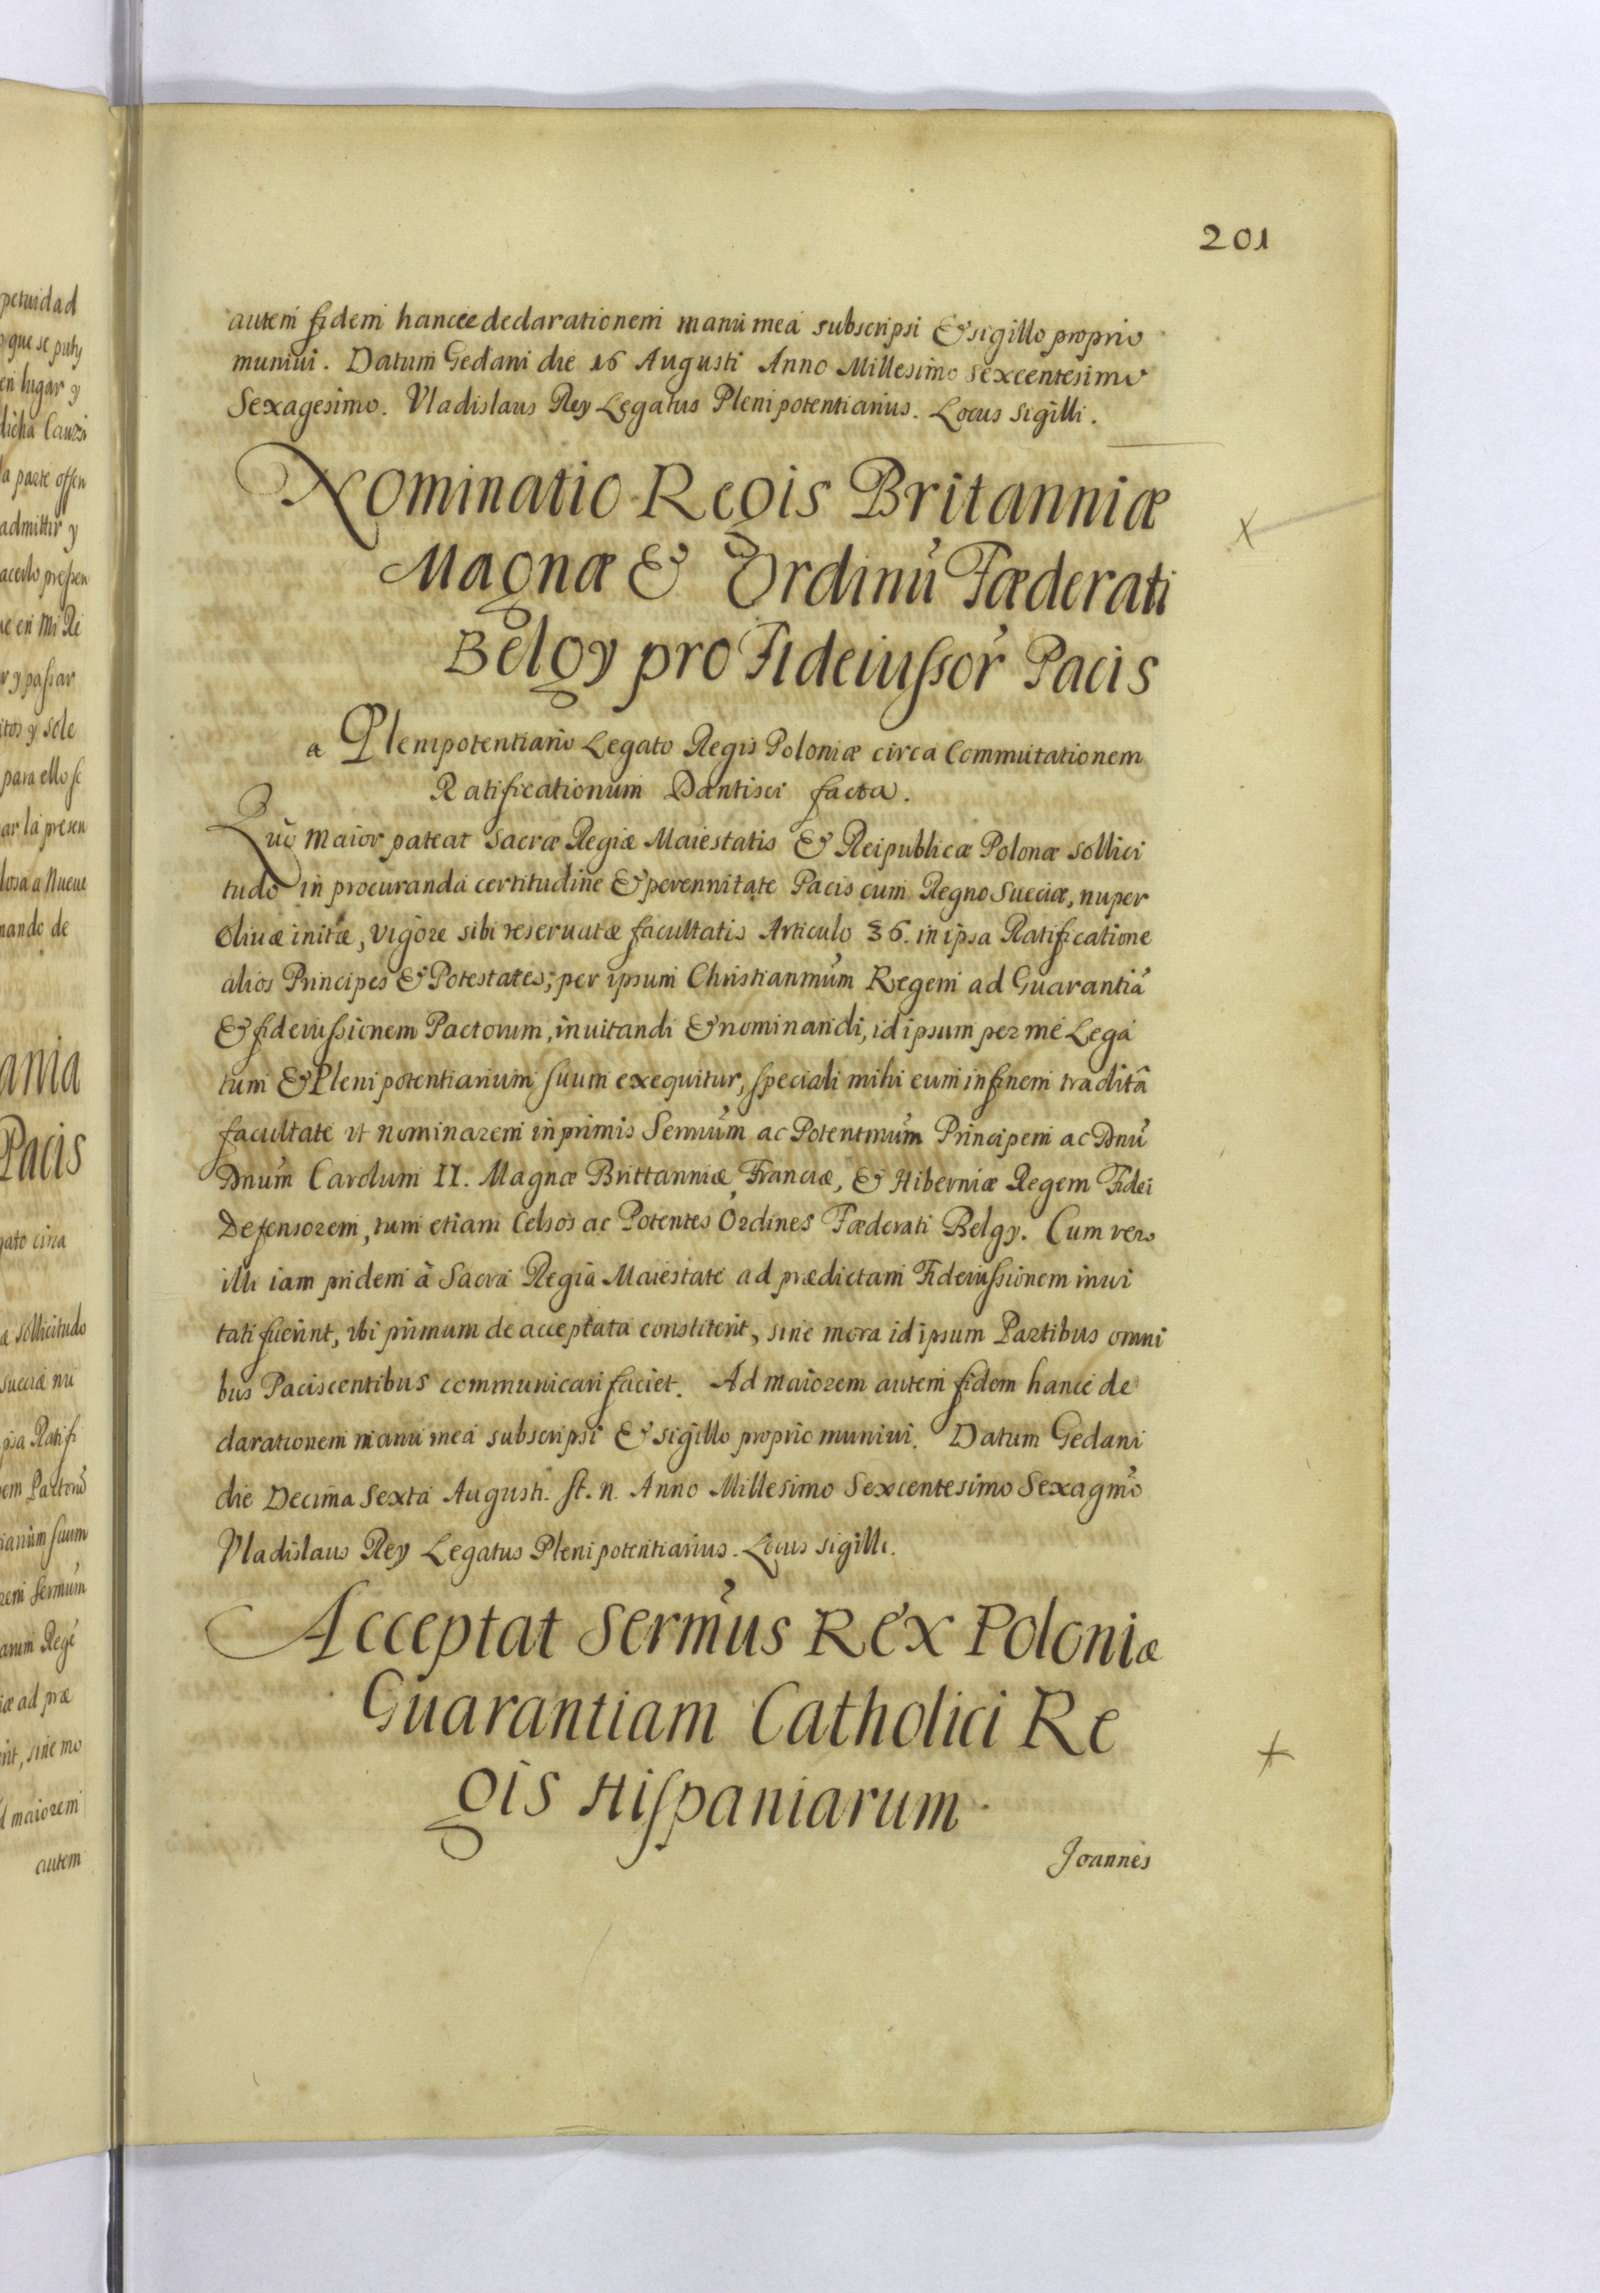 201
autem fidem hancce declarationem manu mea subscripsi & sigillo proprio
muniui. Datum Gedani die 16 Augusti Anno Millesimo Sexcentesimo
Sexagesimo. Vladislaus Rey Legatus Plenipotentiarius. Locus Sigilli.
Nominatio Regis Britanniæ
Magnæ & Ordinũ Fœderati
Belgy pro Fideiussor̃ Pacis
a Plenipotentiario Legato Regis Poloniæ circa Commutationem
Ratificationum Dantisci facta.
Quo maior pateat Sacræ Regiæ Maiestatis & Reipublicæ Polonæ sollici
tudo in procuranda certitudine & perennitate Pacis cum Regno Sueciæ, nuper
Oliuæ initæ, vigore sibi reseruatæ facultatis Articulo 36. in ipsa Ratificatione
alios Principes & Potestates, per ipsum Christianmũm Regem ad Guarantiã
& fideiussionem Pactorum, inuitandi & nominandi, id ipsum per me Lega
tum & Plenipotentiarium suum exequitur, speciali mihi eum in finem traditâ
facultate vt nominarem in primis Sermũm ac Potentmũm Principem ac Dnũ
Dnũm Carolum II. Magnæ Brittanniæ, Franciæ, & Hiberniæ Regem Fidei
Defensorem, tum etiam Celsos ac Potentes Ordines Fœderati Belgy. Cum vero
illi iam pridem â Sacra Regia Maiestate ad prædictam Fideiussionem inui
tati fuerint, vbi primum de acceptata constiterit, sine mora id ipsum Partibus omni
bus Paciscentibus communicari faciet. Ad maiorem autem fidem hance de
clarationem manu mea subscripsi & sigillo proprio muniui. Datum Gedani
die Decima Sexta Augusti. st. n. Anno Millesimo Sexcentesimo Sexagmõ
Vladislaus Rey Legatus Plenipotentiarius. Locus sigilli.
Acceptat Sermũs Rex Poloniæ
Guarantiam Catholici Re
gis Hispaniarum
Joannes
petuidad
en lugar y
la parte offen
admittir y
ue en Mi Re
r y passar
para ello
ar la presen
mando de
ania
Pacis
gato circa
a sollicitudo
Sueciæ nu
psa Ratifi
em Pactorũ
tiarium suum
rem Sermũm
arum Regẽ
iæ ad præ
rint, sine mo
d maiorem
autem